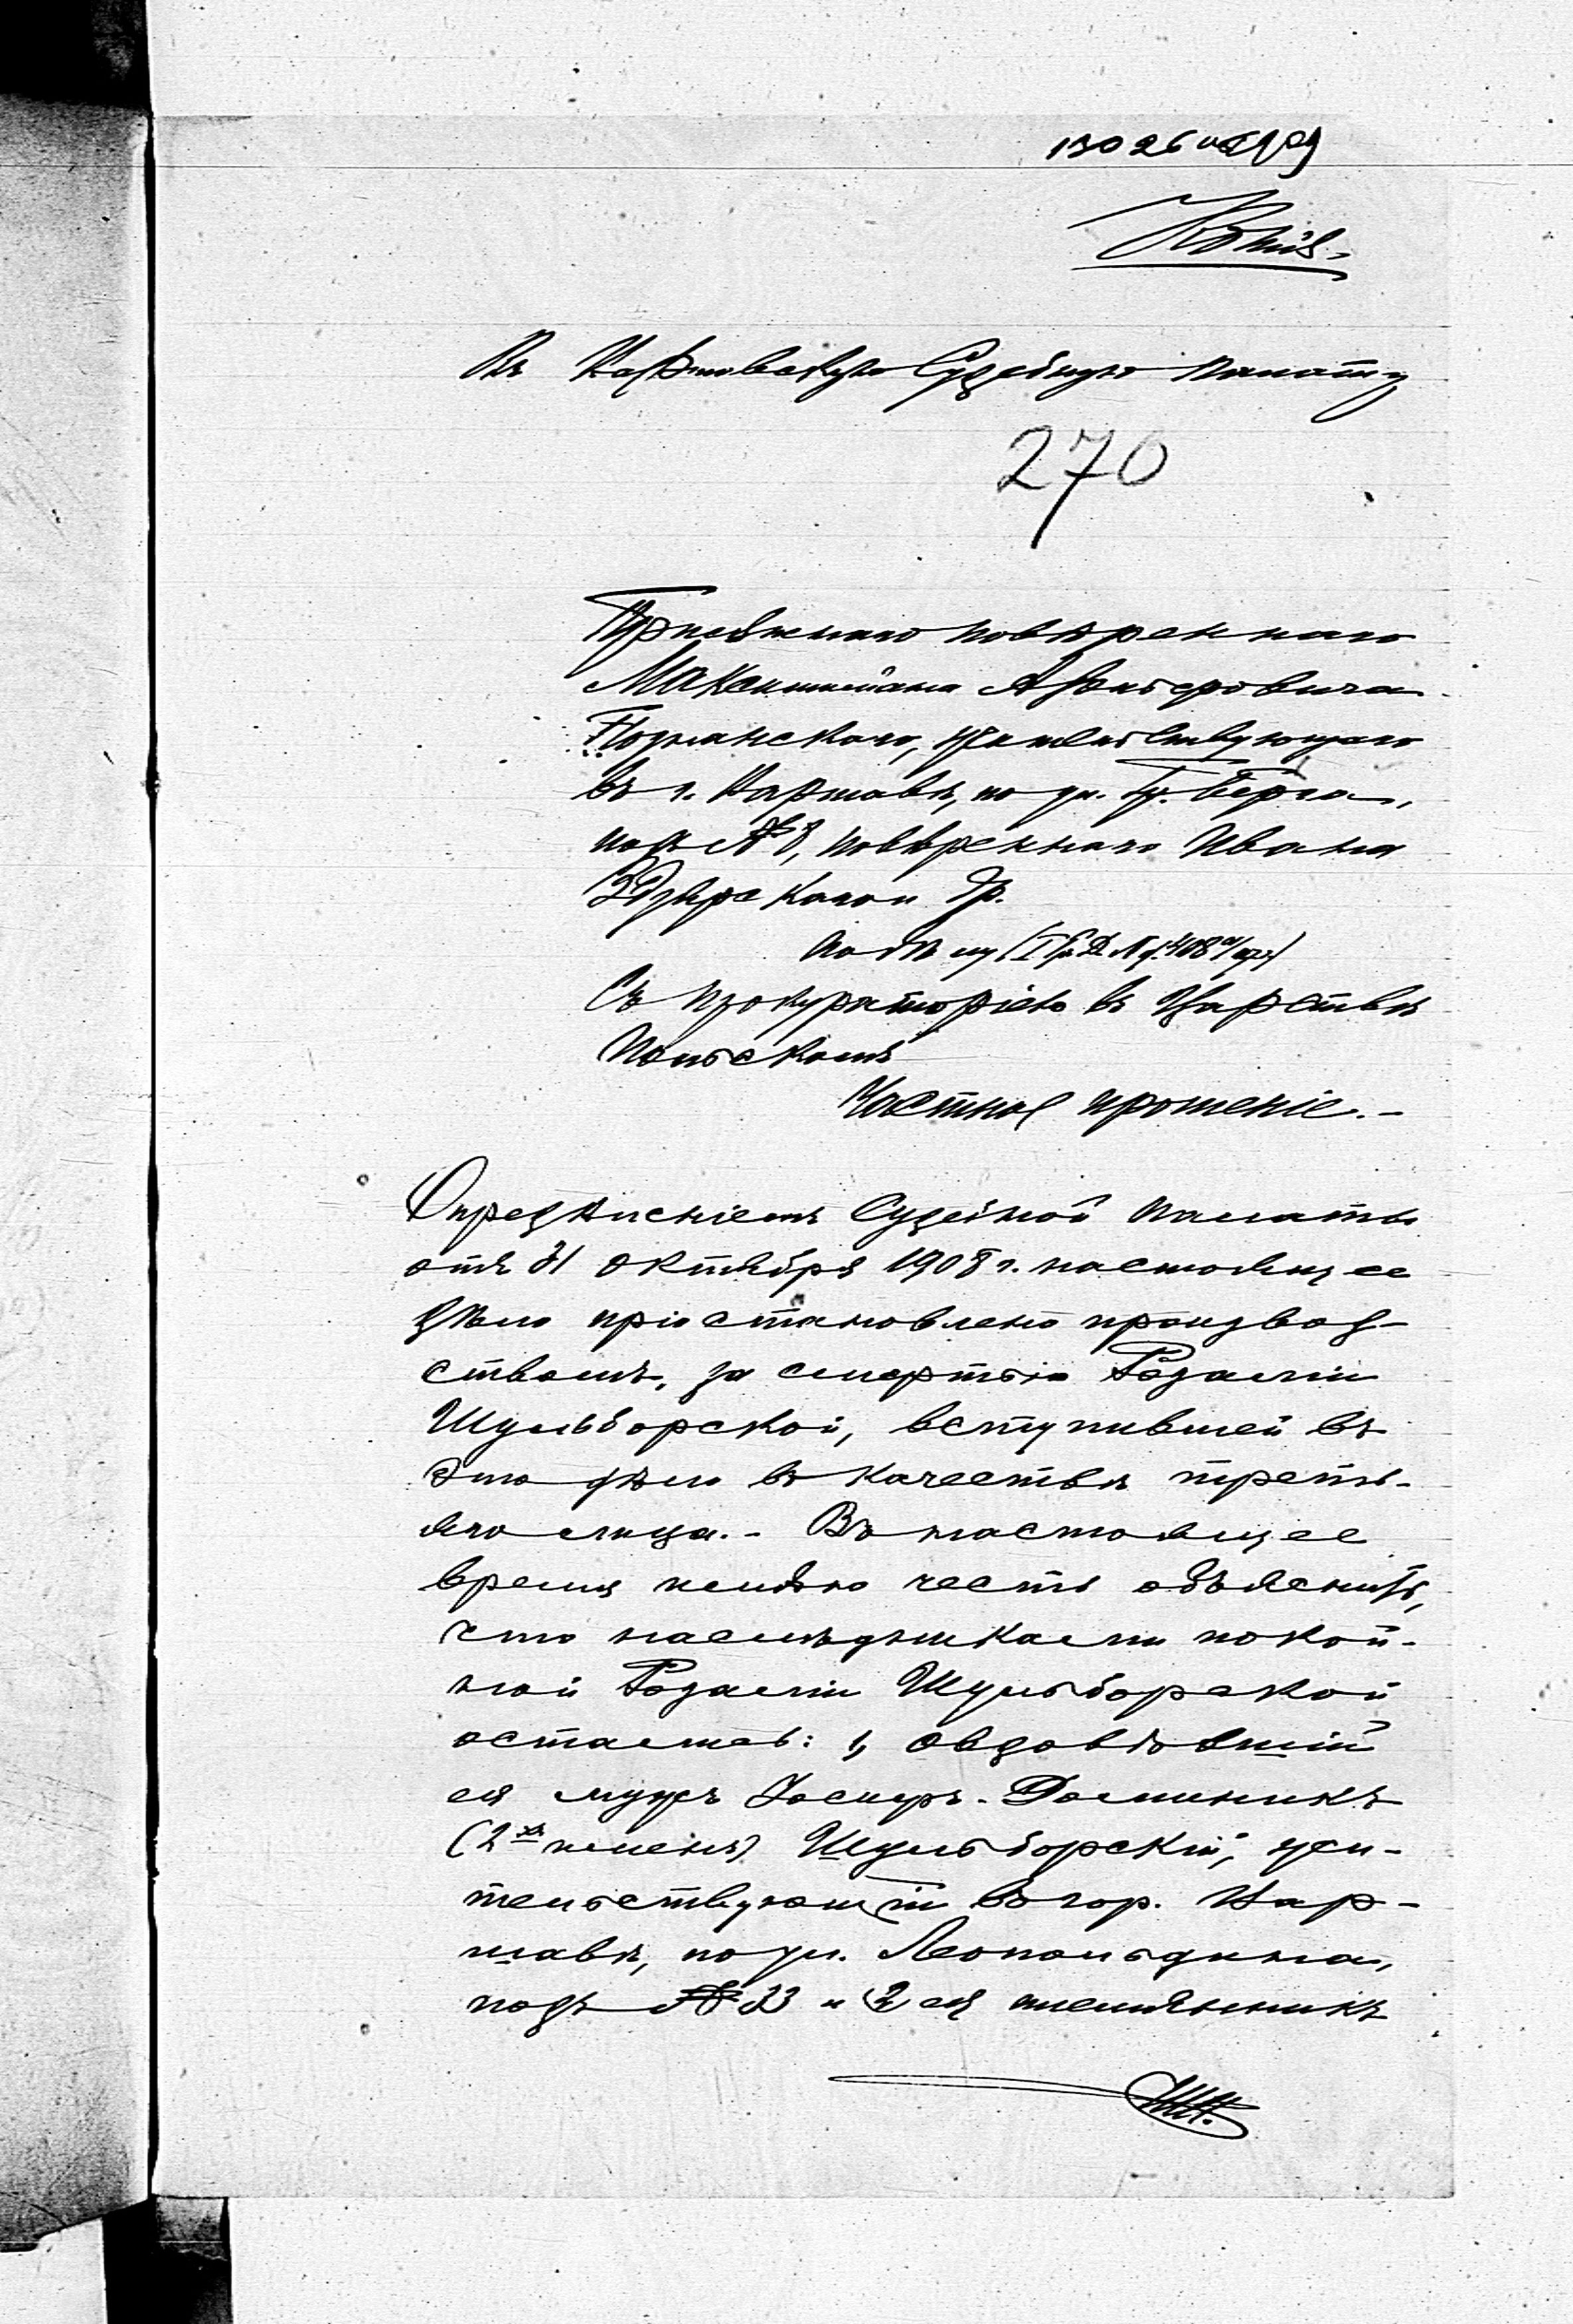 Копія.
Въ Варшавскую Судебную Палату
270
Присяжнаго повѣреннаго
Максимиліана
жительствующаго
въ г. Варшавѣ, по ул. Гр. Берга,
подъ № 8, повѣреннаго Ивана
др.
по дѣлу
Съ прокураторіею въ Царствѣ
Польскомъ
Частное прошеніе.-
Опредѣленіемъ Судебной Палаты
отъ 31 октября 1908 г. настоящее
дѣло пріостановлено производ-
ствомъ, за смертью Розаліи
Шульборской, вступившей въ
это дѣло въ качествѣ треть-
яго лица.- Въ настоящее
время имѣю честь объяснить,
что наслѣдниками покой-
ной Розаліи Шульборской
остались: 1, овдовѣвшій
ея мужъ Іосифъ-Доминикъ
(2хъ именъ) Шульборскій, жи-
тельствующій въ гор. Вар-
шавѣ, по ул. Леопольдина,
подъ № 33 и 2, ея племянникъ